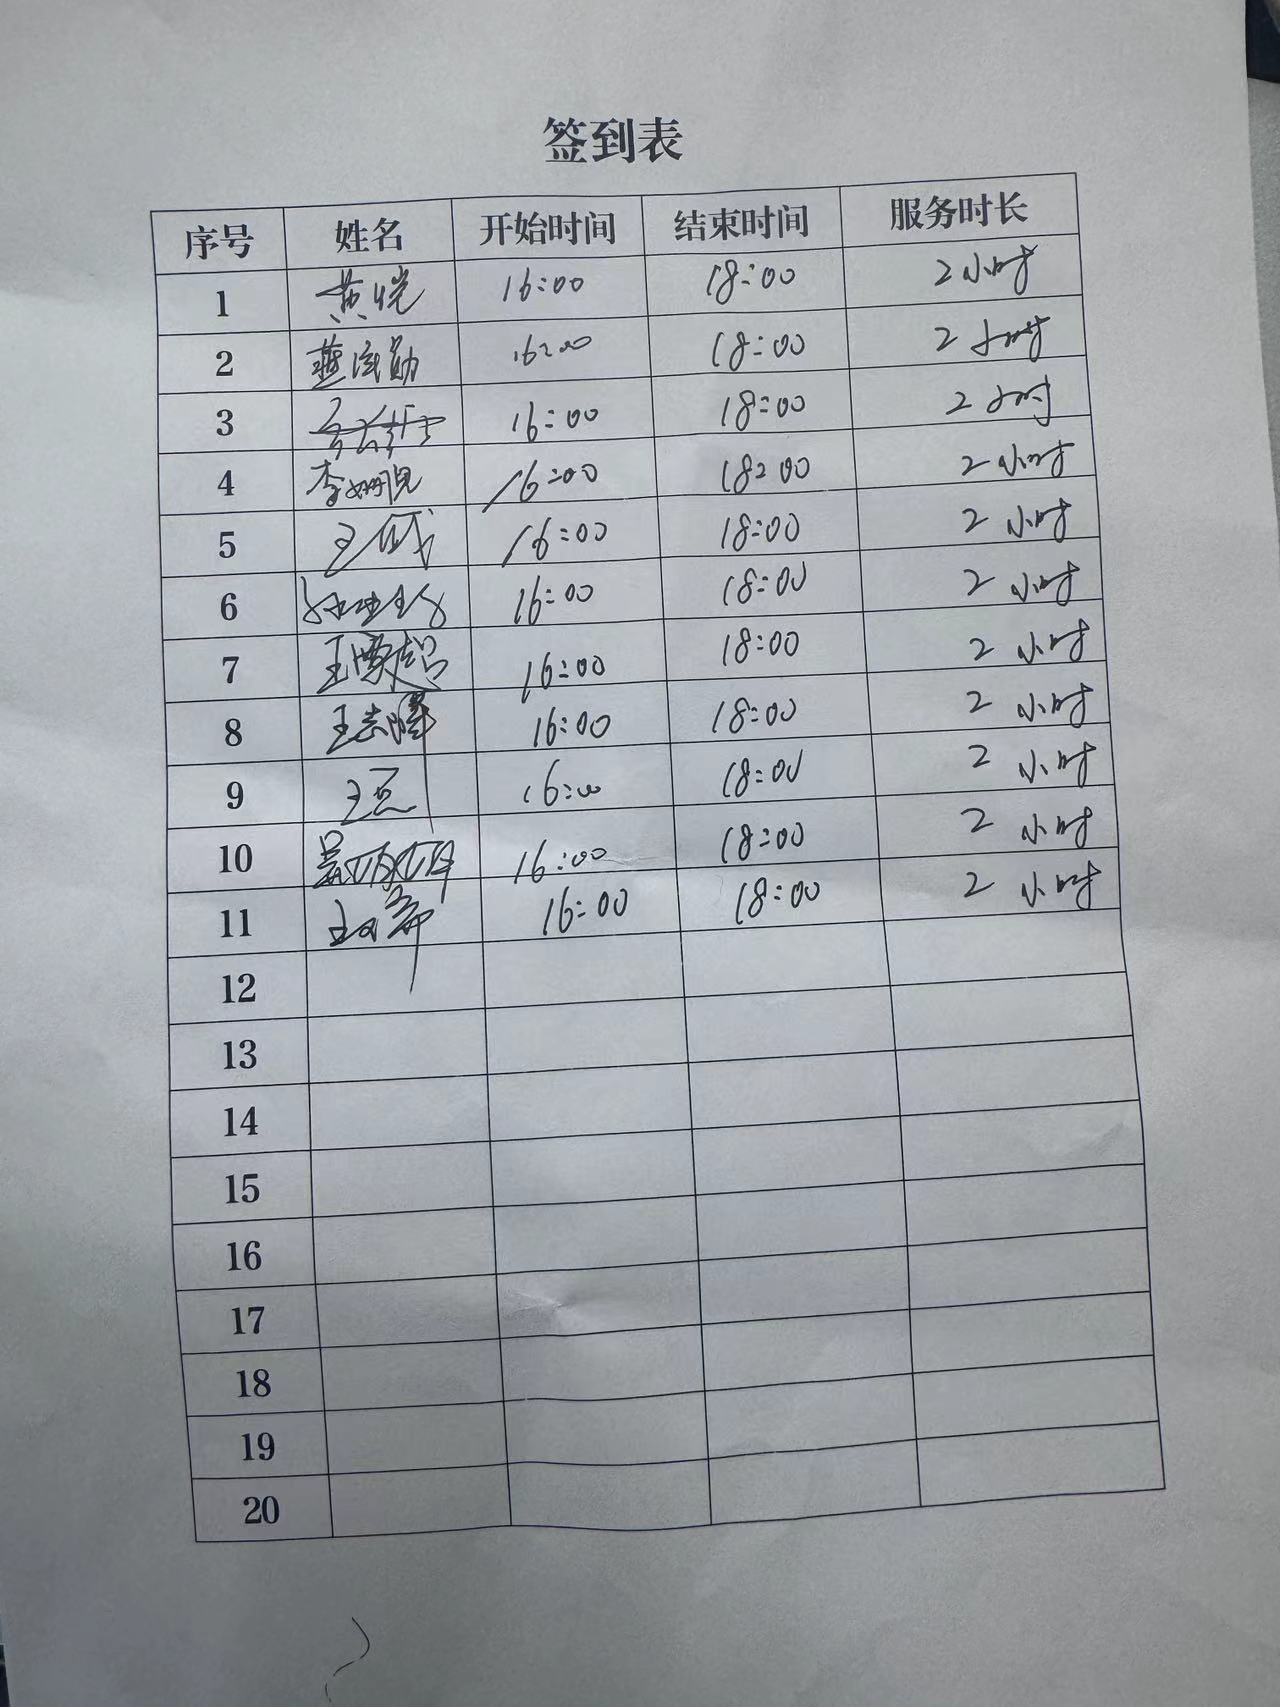 签到表
序号 姓名 开始时间 结束时间 服务时长
1 黄恺 16:00 18:00 2小时
2 16:00 18:00 2小时
3 16:00 18:00 2小时
4 16:00 18:00 2小时
5 16:00 18:00 2小时
6 16:00 18:00 2小时
7 16:00 18:00 2小时
8 王志晖 16:00 18:00 2小时
9 16:00 18:00 2小时
10 16:00 18:00 2小时
11 16:00 18:00 2小时
12
13
14
15
16
17
18
19
20